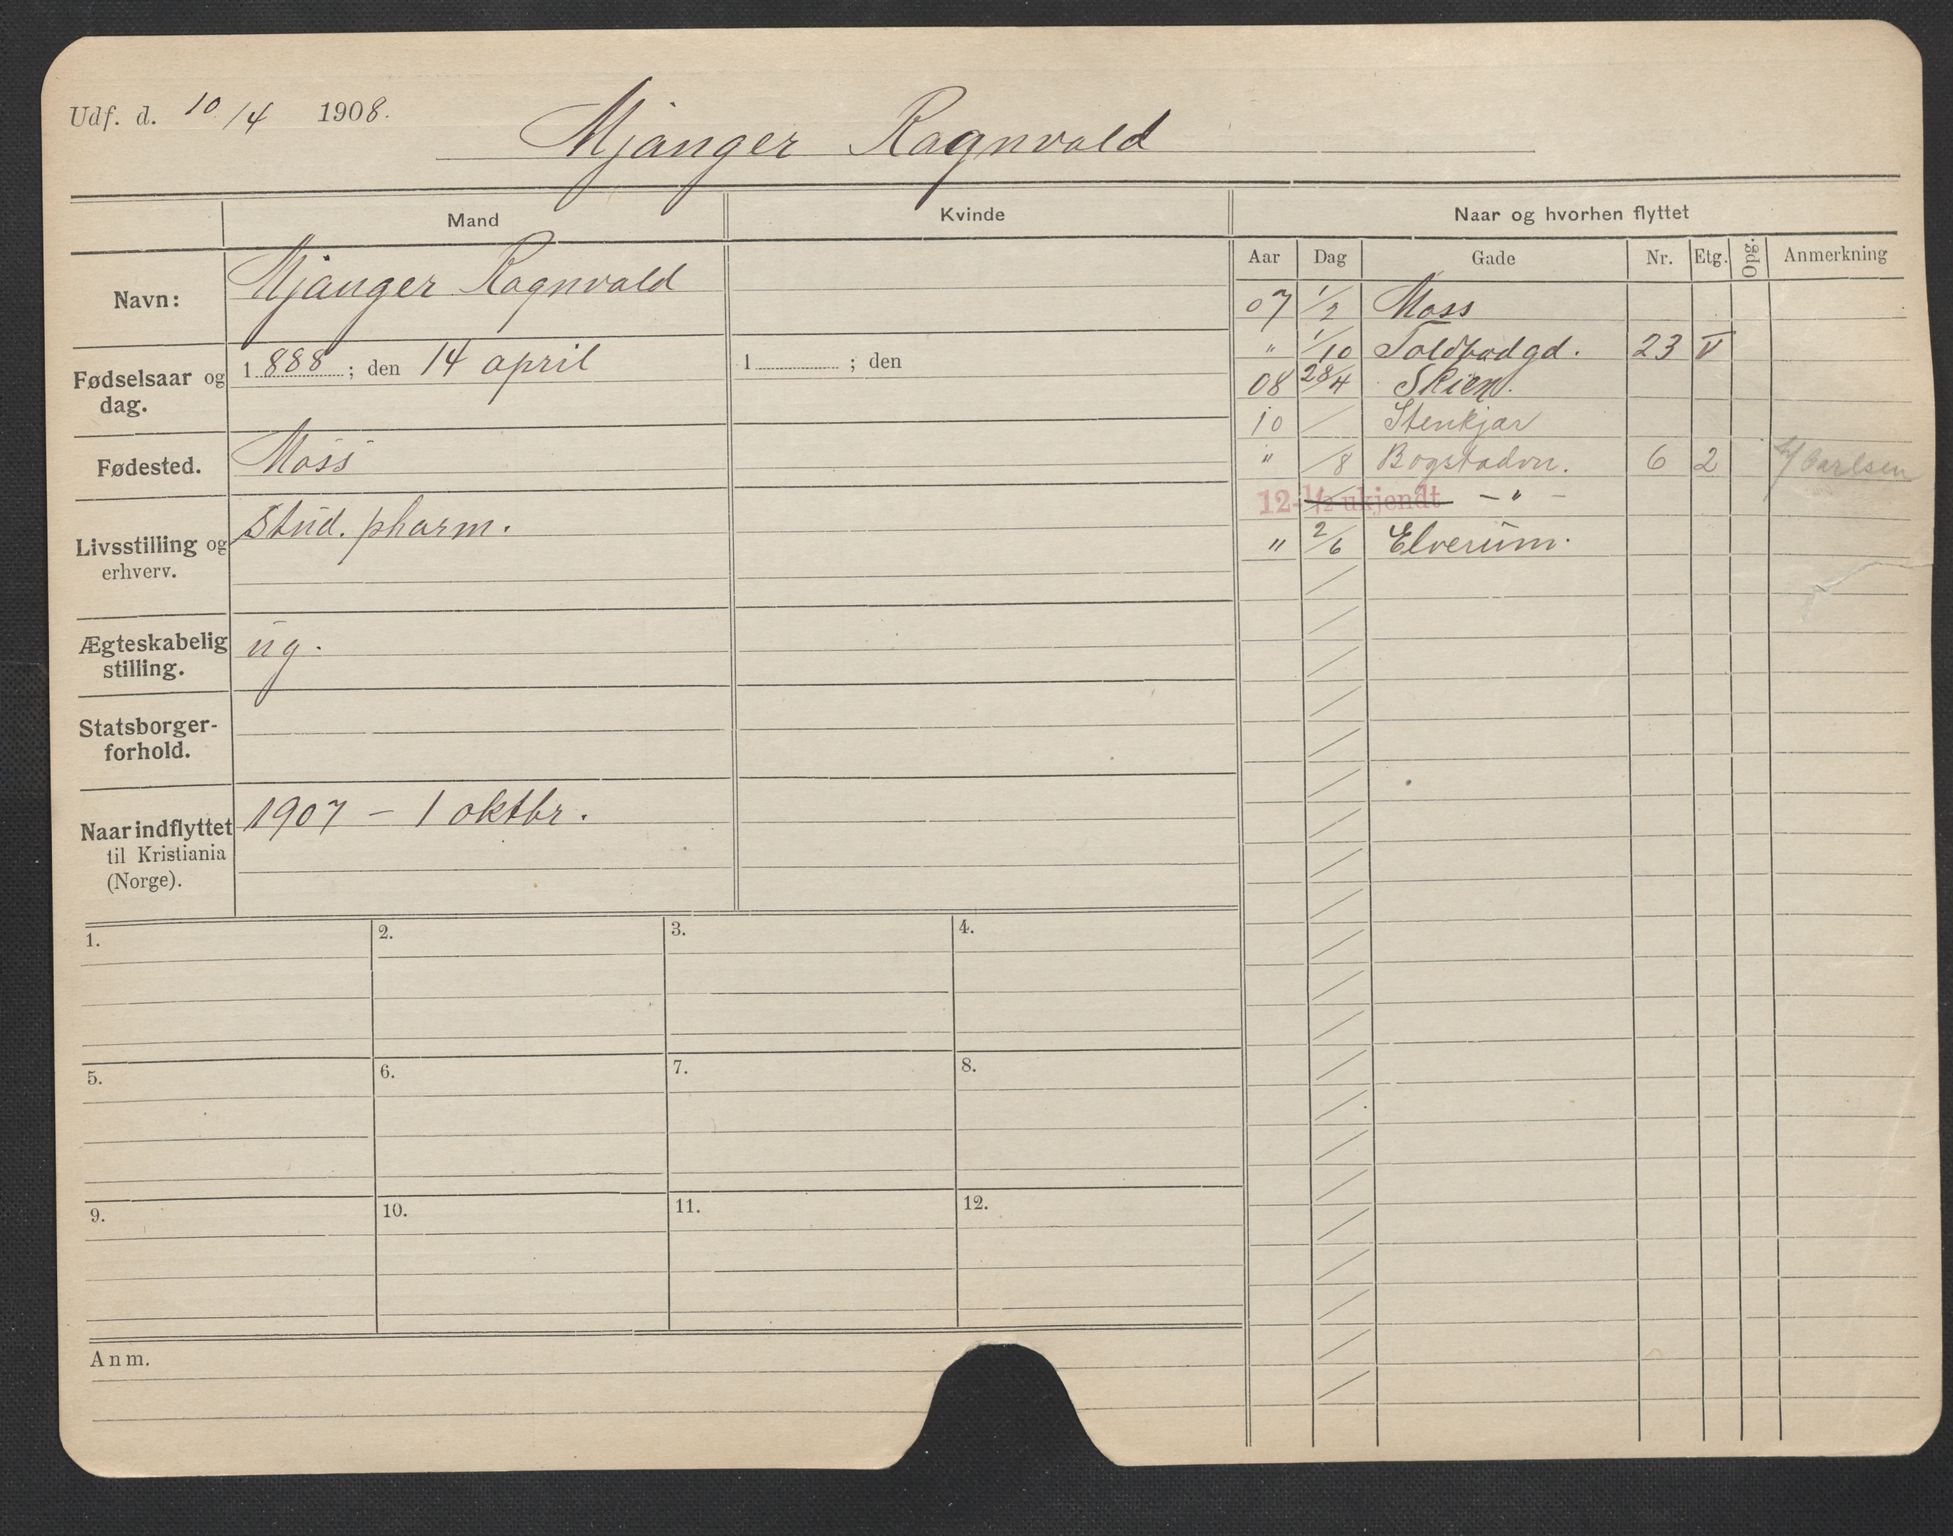 Udf. d. 10/4 1908.
Mjanger Ragnvald
Mand Kvinde Naar og hvorhen flyttet
Aar Dag Gade Nr. Etg. Opg. Anmerkning
Navn: Mjanger Ragnvald
Fødselsaar og dag. 1888; den 14 april 1 ; den
Fødested. Moss
Livsstilling og erhverv. stud. pharm.
Ægteskabelig stilling. ug.
Statsborgerforhold.
Naar indflyttet til Kristiania (Norge). 1907 - 1 oktbr.
07 1/2 Moss
" 1/10 Toldbodgd. 23 V
08 28/4 Skien.
10 / Stenkjær
" /8 Bogstadvn. 6 2 h/ Carlsen
12-1/2 ukjendt - " -
" 2/6 Elverum.
1. 2. 3. 4.
5. 6. 7. 8.
9. 10. 11. 12.
Anm.